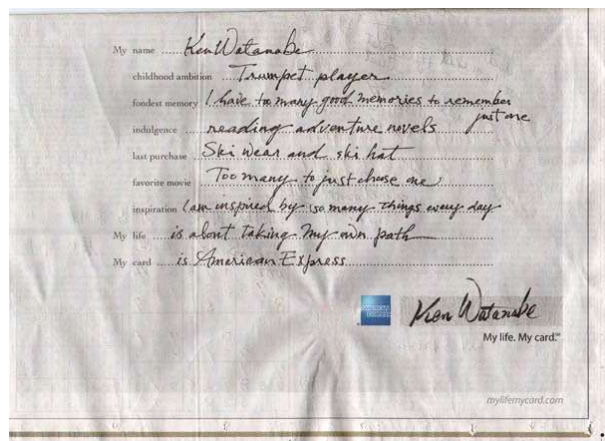 My name Ken Watanabe
childhood ambition Trumpet player
fondest memory I have too many good memories to remember
just one
indulgence reading adventure novels
last purchase Ski wear and ski hat
favorite movie Too many to just choose one
inspiration I am inspired by so many things every day
My life is about taking my own path
My card is American Express
AMERICAN EXPRESS
Ken Watanabe
My life. My card.℠
mylifemycard.com